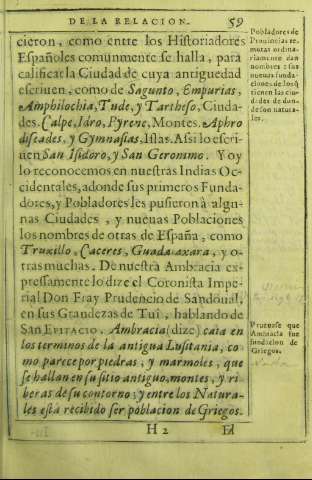 DE LA RELACION. 59
cieron, como entre los Historiadores
Españoles comunmente se halla, para
calificar la Ciudad de cuya antiguedad
escriuen, como de Sagunto, Empurias,
Amphilochia, Tude, y Tartheso, Ciuda-
des. Calpe, Idro, Pyrene, Montes. Aphro
diseades, y Gymnasias, Islas. Assi lo escri-
uen San Isidoro, y San Geronimo. Y oy
lo reconocemos en nuestras Indias Oc-
cidentales, adonde sus primeros Funda-
dores, y Pobladores les pusieron à algu-
nas Ciudades, y nueuas Poblaciones
los nombres de otras de España, como
Truxillo, Caceres, Guadalaxara, y o-
tras muchas. De nuestra Ambracia ex-
pressamente lo dize el Coronista Impe-
rial Don Fray Prudencio de Sandoual,
en sus Grandezas de Tui, hablando de
SAN EPITACIO. Ambracia (dize) caia en
los terminos de la antigua Lusitania, co
mo parece por piedras, y marmoles, que
se hallan en su sitio antiguo, montes, y ri-
beras de su contorno; y entre los Natura-
les està recibido ser poblacion de Griegos.
H 2 El
Pobladores de
Prouincias re-
motas ordina-
riamente dan
nombres a sus
nueuas funda-
ciones de los q
tienen las ciu-
dades de don-
de son natura-
les.
Prueuase que
Ambracia fue
fundacion de
Griegos.